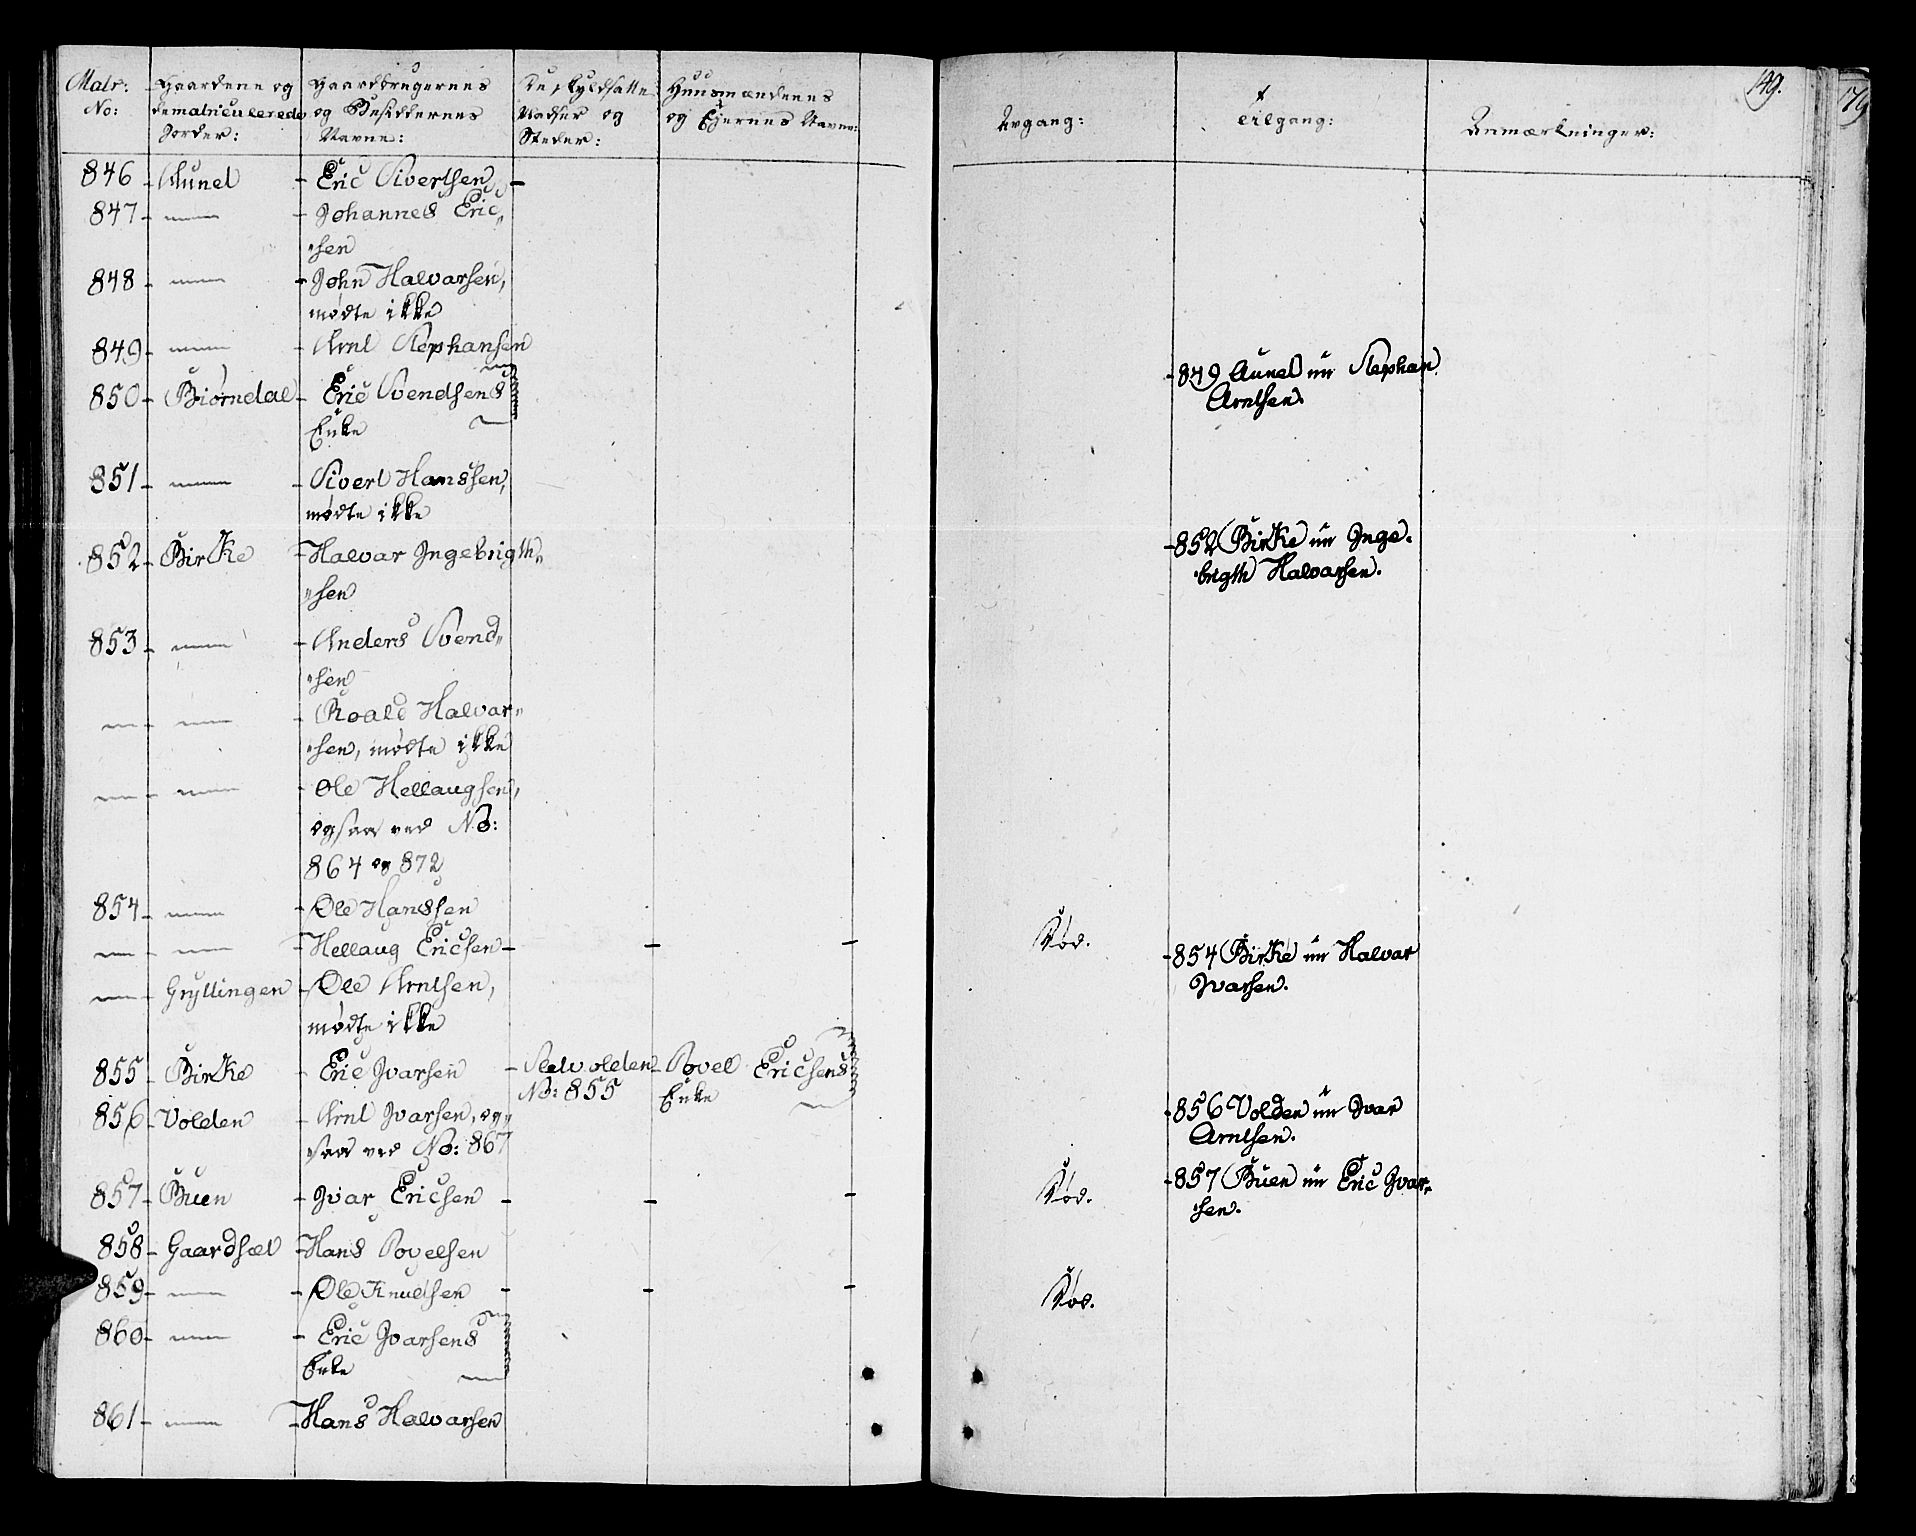 Matr: No:
Gaardene og de matriculerede Jorder:
Gaardbrugernes og Besiddernes Navne:
Pladser og Steder:
Huusmændenes og Ejernes Navne:
846 - Aunet - Eric Sivertsen -
847 - — - Johannes Eric-
sen
848 - — - John Halvarsen,
mødte ikke
849 - — - Arnt Stephansen
850 - Biørndal - Eric Svendsens
Enke
851 - — - Sivert Hanssen,
mødte ikke
852 - Birke - Halvar Ingebrigth-
sen
853 - — - Anders Svend-
sen
— - — - Roald Halvar-
sen, mødte ikke
— - — - Ole Hellaugsen,
ogsaa ved No:
864 og 872
854 - — - Ole Hanssen
— - — - Hellaug Ericsen -
— - Gryttingen - Ole Arntsen,
mødte ikke
855 - Birke - Eric Ivarsen - Sletvolden - Povel Ericsens
No: 855 Enke
856 - Volden - Arnt Ivarsen, og-
saa ved No: 867
857 - Buen - Ivar Ericsen -
858 - Gaardsæt - Hans Povelsen
859 - — - Ole Knudsen -
860 - — - Eric Ivarsens
Enke
861 - — - Hans Halvarsen
149.
Avgang:
Tilgang:
Anmærkninger:
- 849 Aunet nu Stephan
Arntsen.
- 852 Birke nu Inge-
brigth Halvarsen.
Død.
- 854 Birke nu Halvar
Ivarsen.
- 856 Volden nu Ivar
Arntsen.
Død.
- 857 Buen nu Eric Ivar-
sen.
Død.